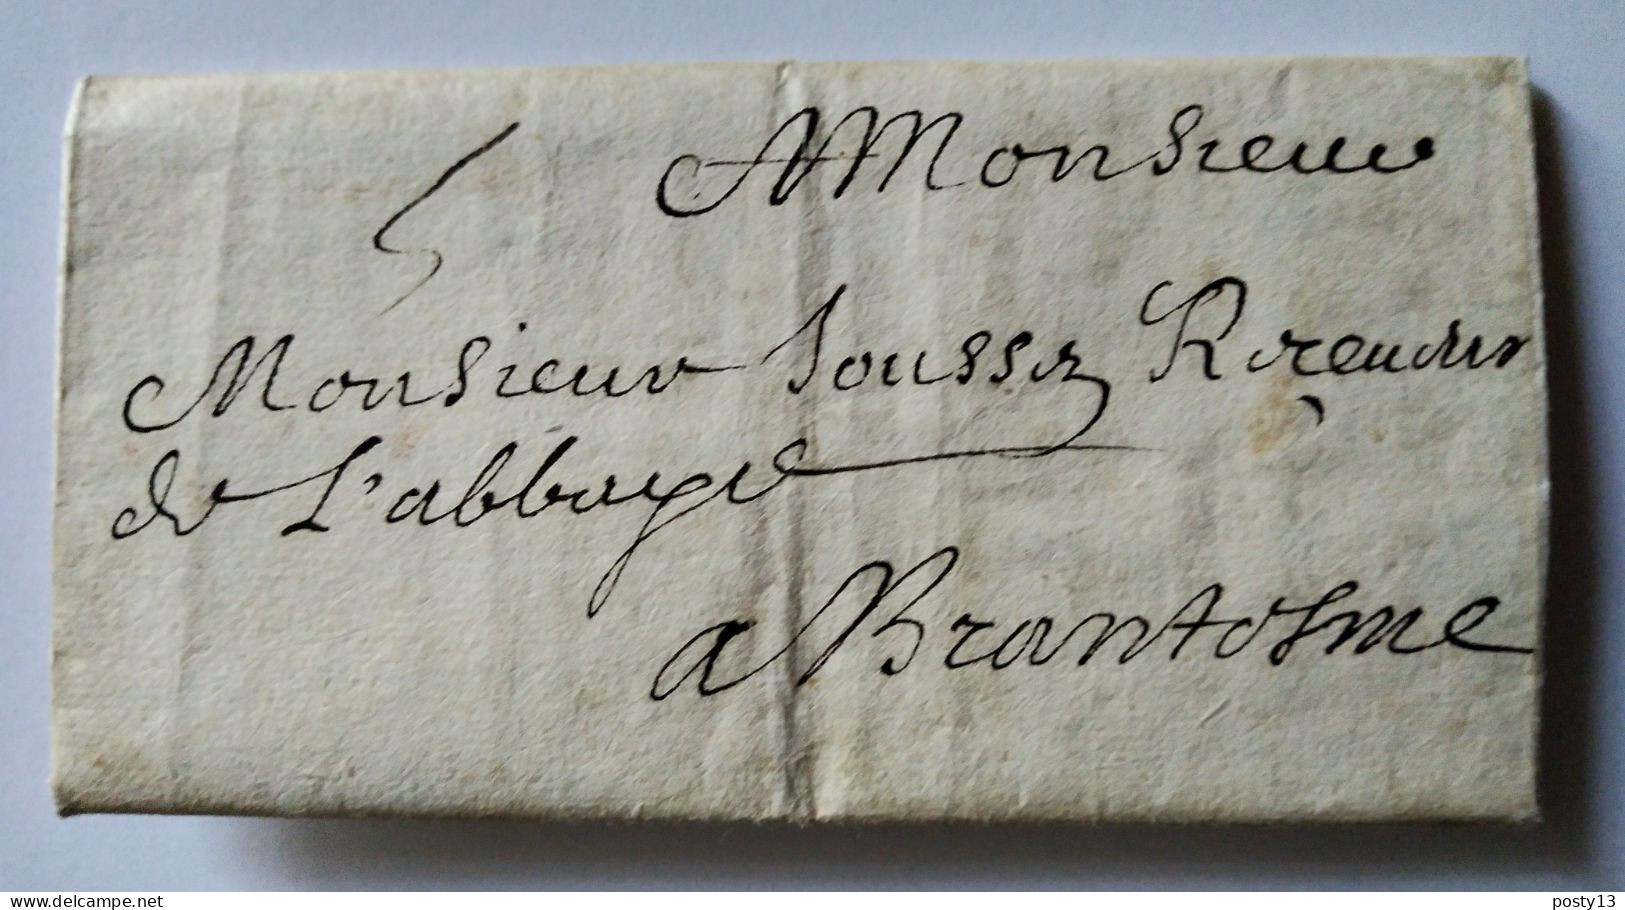 5
A Monsieur
Monsieur
de L'abbaye
a Brantosme
www.delcampe.net
posty13